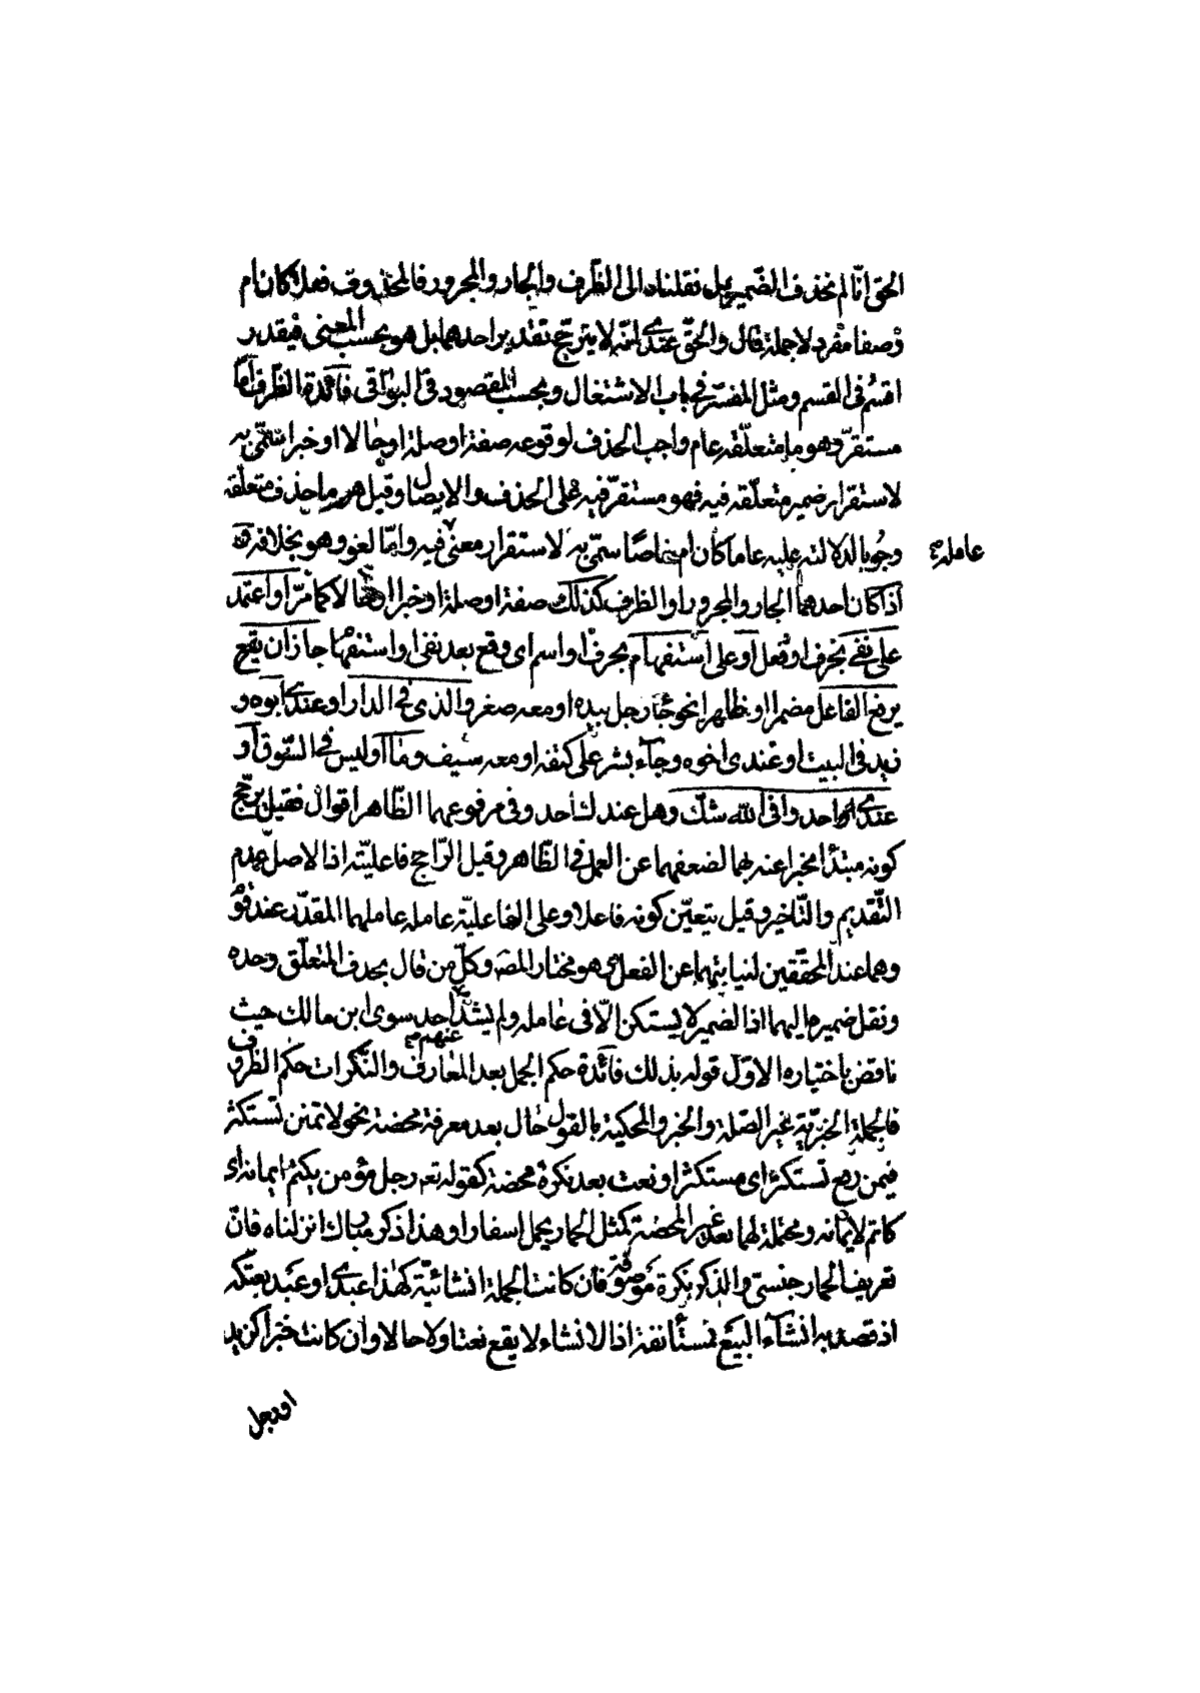 الحق انّا لم نحذف الضمير بل نقلناه الى الظّرف والجار والمجرور فالمحذوف فعلا كان ام
وصفا مفرد لا جملة قال والحقّ عندى انّه لا يترجّح تقدير احدهما بل هو بحسب المعنى فيقدر
اقسم فى القسم ومثل المفسّر فى باب الاشتغال وبحسب المقصود فى البواقى فائدة الظّرف امّا
مستقرّ وهو ما متعلّقه عام واجب الحذف لوقوعه صفة او صلة او حالا او خبرا سمّى به
لاستقرار ضمير متعلّقه فيه فهو مستقرّ فيه على الحذف والايصال وقيل هو ما حذف متعلّقه
وجوبا لدلالته عليه عاما كان ام خاصّا سمّى به لاستقرار معنى فيه وامّا لغو وهو بخلافه
عامله
اذا كان احدهما الجار والمجرور او الظرف كذلك صفة او صلة او خبرا او حالا كما مرّ او اعتمد
على نفى بحرف او فعل او على استفهام بحرف او اسم اى وقع بعد نفى او استفهام جاز ان يقع
يرفع الفاعل مضمرا او ظاهرا نحو جاء رجل بيده او معه صغر والذى فى الدار او عندى ابوه و
زيد فى البيت او عندى اخوه وجاء بشر على كتفه او معه سيف وما او ليس فى السّوق او
عندى احد وافى الله شكّ وهل عندك احد وفى مرفوعهما الظّاهر اقوال فقيل يرجّح
كونه مبتدأ مخبرا عنه بهما لضعفهما عن العمل فى الظّاهر وقيل الرّاجح فاعليّته اذ الاصل عدم
التّقديم والتّاخير وقيل يتعيّن كونه فاعلا وعلى الفاعليّة عامله عاملهما المقدّر عند قوم
وهما عند المحقّقين لنيابتهما عن الفعل وهو مختار المصه وكلّ من قال بحذف المتعلّق وحده
ونقل ضميره اليهما اذ الضمير لا يستكن الّا فى عامله ولم يشذّ احد سوى ابن مالك حيث
عنهم
ناقض باختياره الاوّل قوله بذلك فائدة حكم الجمل بعد المعارف والنّكرات حكم الظرف
فالجملة الخبريّة غير الصّلة والخبر والمحكية بالقول حال بعد معرفة محضة نحو لا تمنن تستكثر
فيمن رفع تستكثر اى مستكثرا ونعت بعد نكرة محضة كقوله تعه رجل مؤمن يكتم ايمانه اى
كاتم لايمانه ومحتملة لهما بعد غير المحضة كمثل الحمار يحمل اسفارا وهذا ذكر مبارك انزلناه فانّ
تعريف الحمار جنسىّ والذكر نكرة موصوفة فان كانت الجملة انشائيّة كهذا عبدى او عبد بعتكه
اذ قصد به انشاء البيع فمستأنفة اذ الانشاء لا يقع نعتا ولا حالا وان كانت خبرا كزيد
او رجل